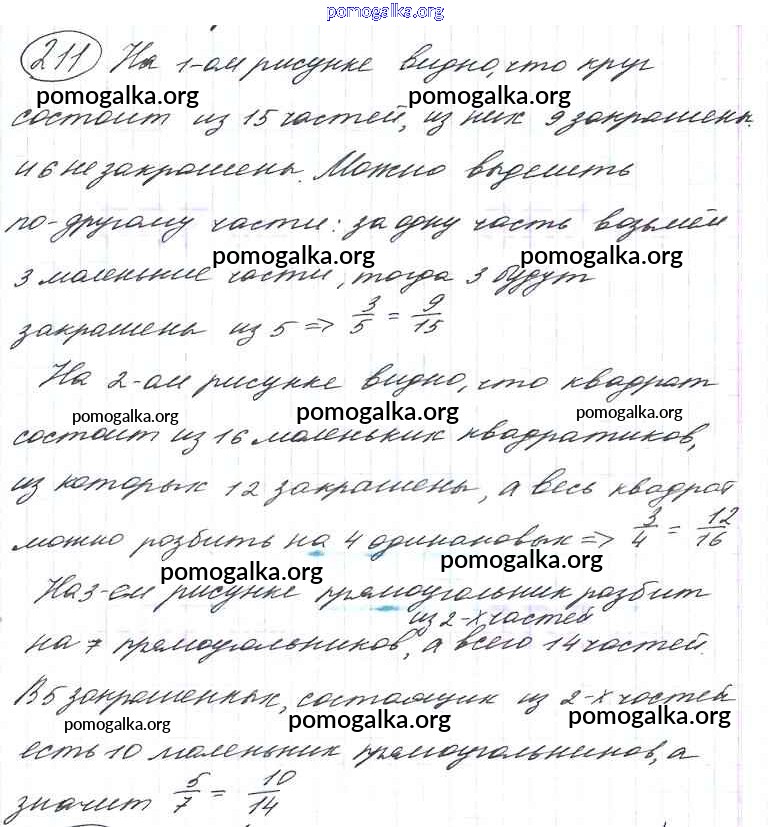 pomogalka.org
211 На 1-ом рисунке видно, что круг
pomogalka.org pomogalka.org
состоит из 15 частей, из них 9 закрашены
и 6 не закрашены. Можно выделить
по-другому части: за одну часть возьмём
pomogalka.org pomogalka.org
3 маленькие части, тогда 3 будут
закрашены из 5 => 3/5 = 9/15
На 2-ом рисунке видно, что квадрат
pomogalka.org pomogalka.org pomogalka.org
состоит из 16 маленьких квадратиков,
из которых 12 закрашены, а весь квадрат
можно розбить на 4 одинаковых => 3/4 = 12/16
pomogalka.org pomogalka.org
На 3-ем рисунке прямоугольник разбит
из 2-х частей
на 7 прямоугольников, а всего 14 частей.
В 5 закрашенных, состоящих из 2-х частей
pomogalka.org pomogalka.org pomogalka.org
есть 10 маленьких прямоугольников, а
значит 5/7 = 10/14